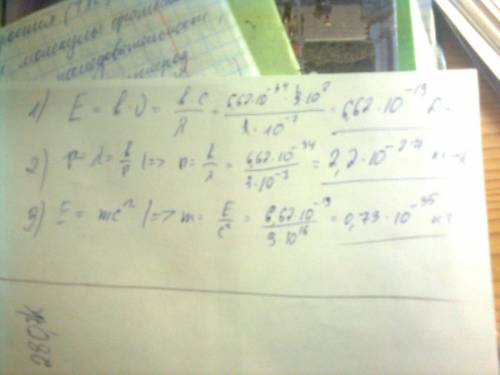 молекулы
1) E = h·ν = h·c/λ = 6,62·10^-34·3·10^8/3·10^-7 = 6,62·10^-19
2) λ = h/p |=> p = h/λ = 6,62·10^-34/3·10^-7 = 2,2·10^-27
3) E = mc² |=> m = E/c² = 6,62·10^-19/9·10^16 = 0,73·10^-35 кг
280Ж